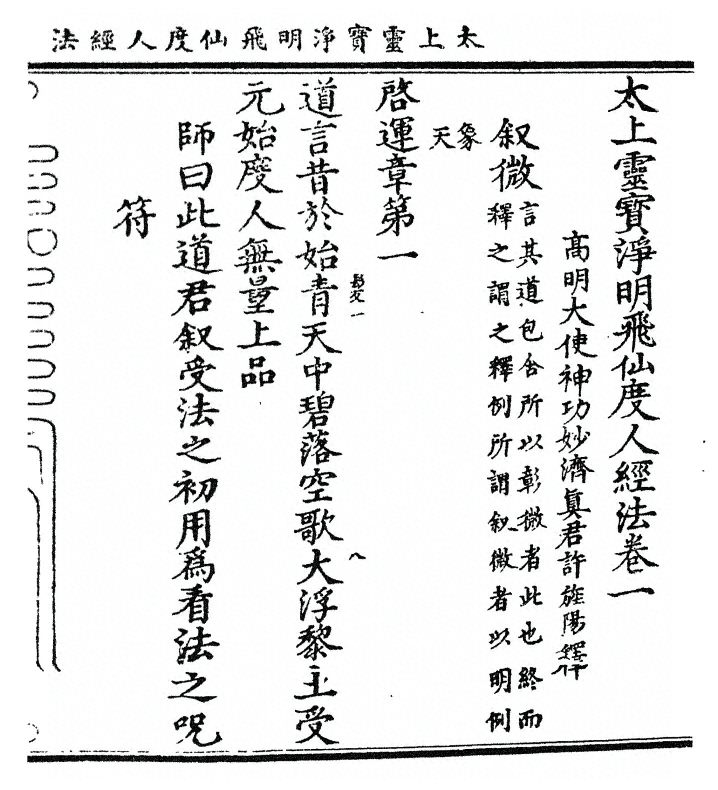 太上靈寶淨明飛仙度人經法
太上靈寶淨明飛仙度人經法卷一
高明大使神功妙濟眞君許旌陽釋
叙微
言其道包含所以彰微者此也終而
釋之謂之釋例所謂叙微者以明例
象
天
啓運章第一
道言昔於始青天中碧落空歌大浮黎土受
元始度人無量上品
師曰此道君叙受法之初用爲看法之呪
符